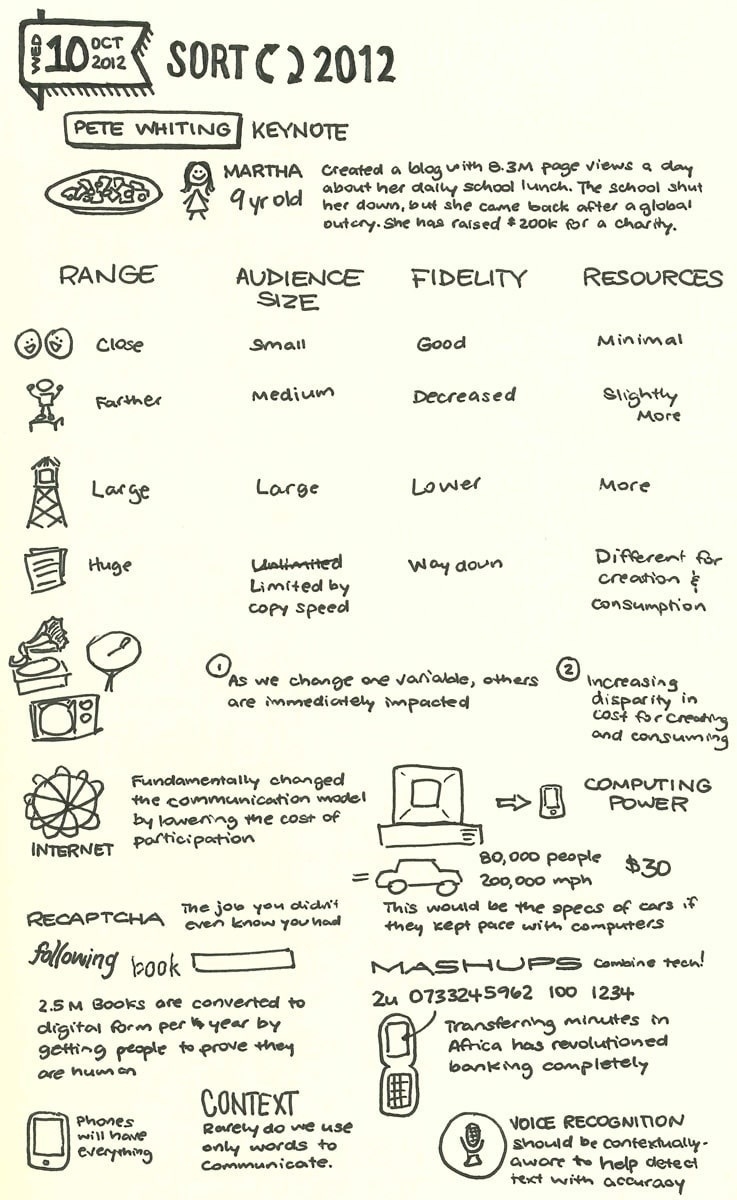 WED 10 OCT 2012
SORT 2012
PETE WHITING KEYNOTE
MARTHA
9 yr old
Created a blog with 8.3M page views a day
about her daily school lunch. The school shut
her down, but she came back after a global
outcry. She has raised $200k for a charity.
RANGE
AUDIENCE
SIZE
FIDELITY
RESOURCES
Close
Small
Good
Minimal
Farther
Medium
Decreased
Slightly
More
Large
Large
Lower
More
Huge
Unlimited
Limited by
copy speed
Way down
Different for
creation &
consumption
1
As we change one variable, others
are immediately impacted
2
Increasing
disparity in
cost for creating
and consuming
INTERNET
Fundamentally changed
the communication model
by lowering the cost of
participation
COMPUTING
POWER
=
80,000 people
200,000 mph
$30
This would be the specs of cars if
they kept pace with computers
RECAPTCHA
The job you didn't
even know you had
following book
2.5 M Books are converted to
digital form per year by
getting people to prove they
are human
MASHUPS Combine tech!
2u 0733245962 100 1234
Transferring minutes in
Africa has revolutioned
banking completely
Phones
will have
everything
CONTEXT
Rarely do we use
only words to
communicate.
VOICE RECOGNITION
should be contextually-
aware to help detect
text with accuracy